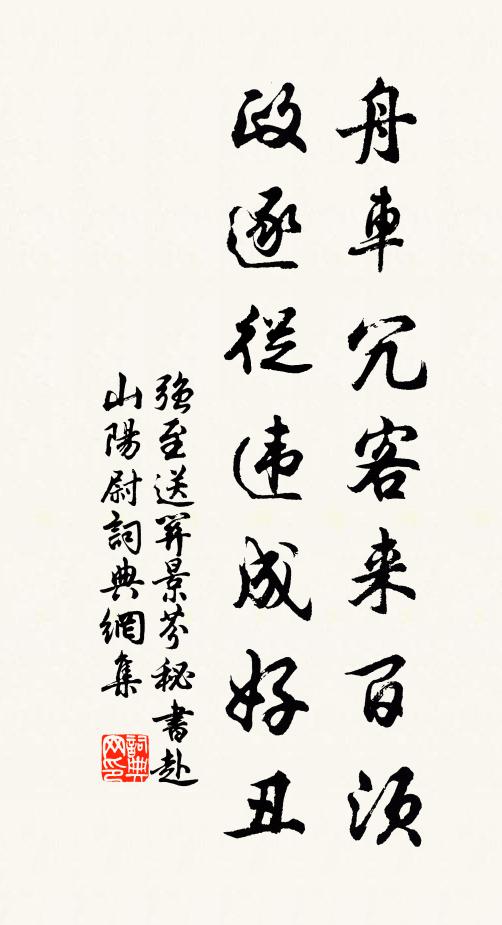 舟車冗客来百須
政逐從违成好丑
强至送羿景芬秘書赴
山陽尉詞典網集
詞典
网印